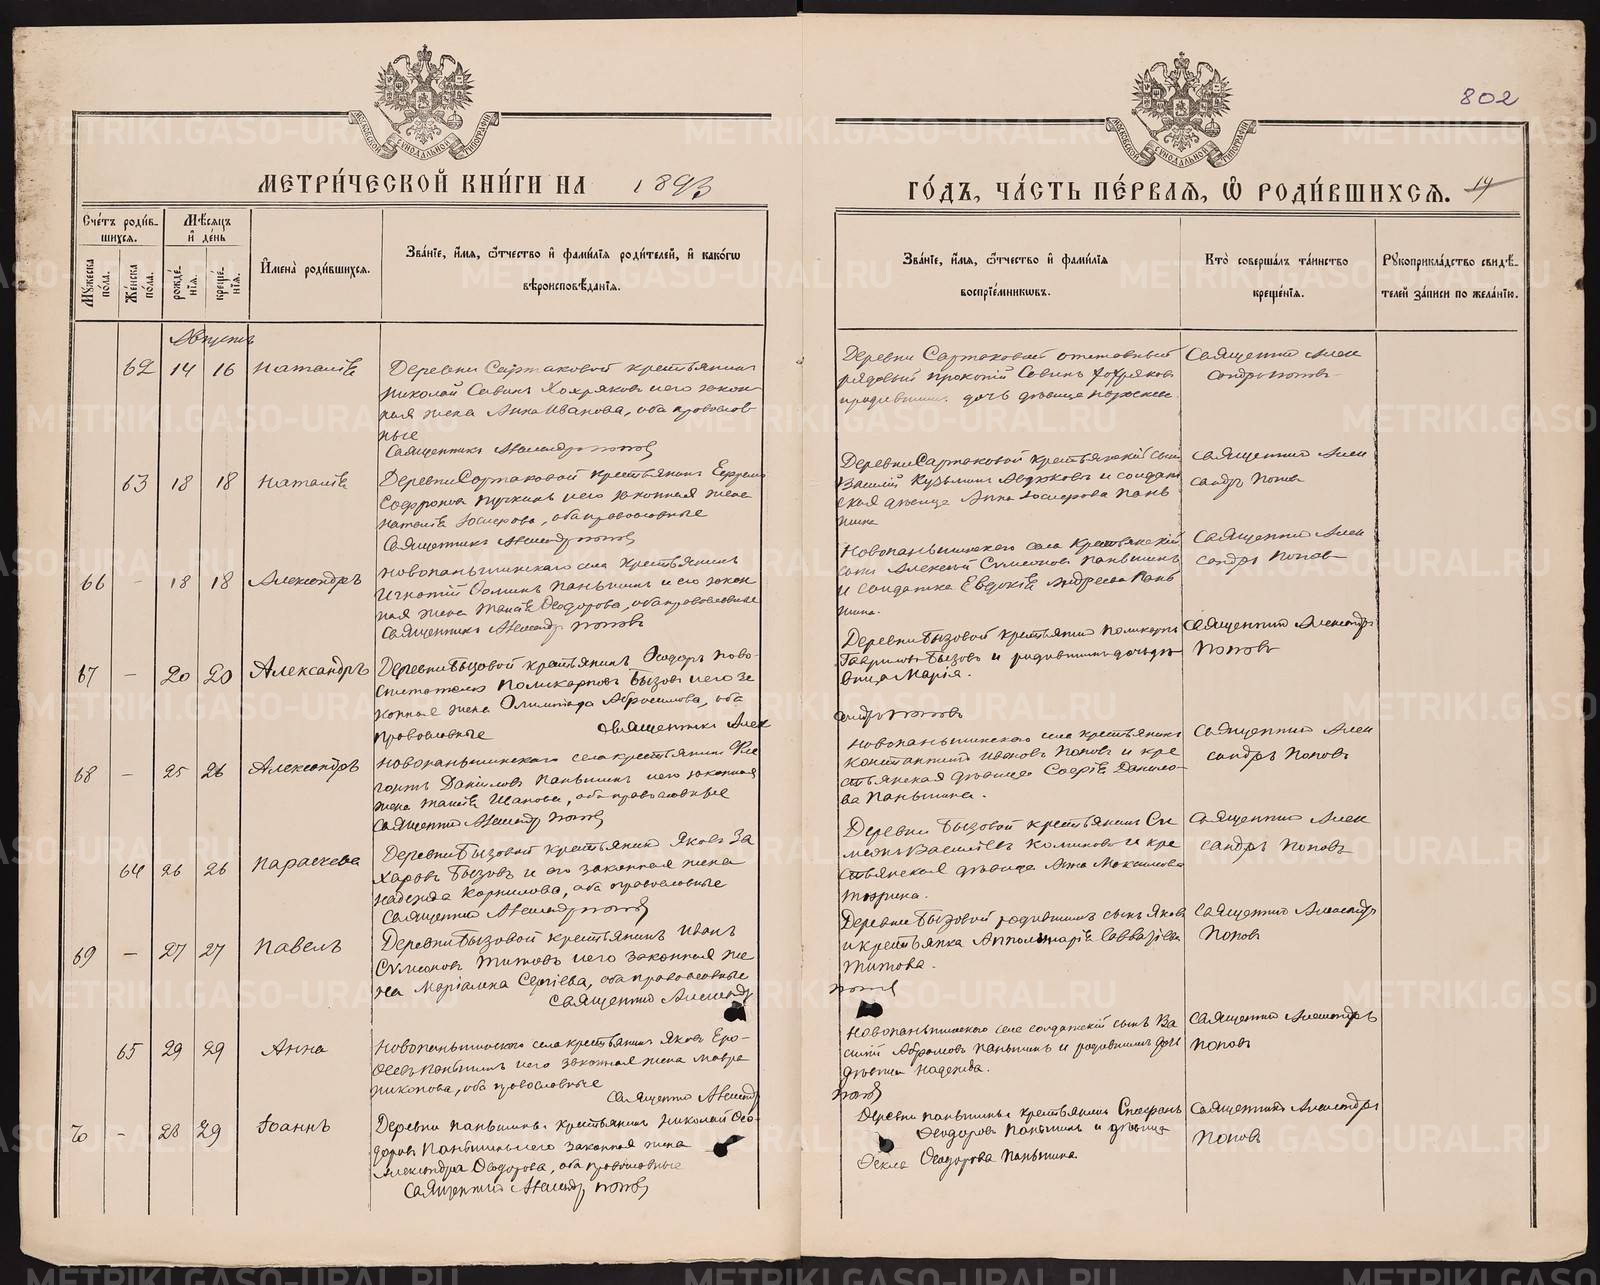 802
МЕТРИ́ЧЕСКОЙ КНИ́ГИ НА 1893
ГО́ДЪ, ЧА́СТЬ ПЕ́РВАЯ, Ѡ РОДИ́ВШИХСЯ. 14
Сче́тъ роди́в-
шихся.
Мѣсяцъ
и де́нь
Мꙋ́жеска по́ла.
Же́нска по́ла.
рожде́нїя.
креще́нїя.
И҆мена̀ роди́вшихся.
Зва́нїе, и҆́мя, ѻ҆́тчество и҆ фами́лїя роди́телей, и҆ како́гѡ
вѣроисповѣ́данїя.
Зва́нїе, и҆́мя, ѻ҆́тчество и҆ фами́лїя
воспрїе́мникѡвъ.
Кто̀ соверша́лъ та́инство
креще́нїя.
Рꙋкоприкла́дство свидѣ́-
телей за́писи по жела́нїю.
Августъ
62 14 16 Наталія
Деревни Сартаковой крестьянинъ
Николай Савинъ Хохряковъ и его закон-
ная жена Анна Иванова, оба православ-
ные
Священникъ Александръ Поповъ
Деревни Сартаковой отставный
рядовый Прокопій Савинъ Хохряковъ
дочь дѣвица
Священникъ Алек
сандръ Поповъ
63 18 18 Наталія
Деревни Сартаковой крестьянинъ Ефремъ
Софроновъ Пучкинъ и его законная жена
Наталія, оба православные
Священникъ Александръ Поповъ
Деревни Сартаковой крестьянскій сынъ
Василій Кузьминъ и солдат
ская дѣвица Анна Пань
шина
Священникъ Алек
сандръ Поповъ
66 - 18 18 Александръ
Новопаньшинскаго села крестьянинъ
Игнатій Паньшинъ и его закон
ная жена Таисія Ѳеодорова, оба православные
Священникъ Александръ Поповъ
Новопаньшинскаго села крестьянскій
сынъ Алексѣй Симеоновъ Паньшинъ
и солдатка Евдокія Андреева Пань
шина.
Священникъ Алек
сандръ Поповъ
67 - 20 20 Александръ
Деревни Бызовой крестьянинъ Ѳеодоръ
Поликарповъ Бызовъ и его за
конная жена Олимпіада Абросимова, оба
православные Священникъ Алек
сандръ Поповъ
Деревни Бызовой крестьянинъ Поликарпъ
Гавриловъ Бызовъ и родившихъ дочь дѣ
вица Марія.
Священникъ Александръ
Поповъ
68 - 25 26 Александръ
Новопаньшинскаго села крестьянинъ
Даниловъ Паньшинъ и его законная
жена Таисія Иванова, оба православные
Священникъ Александръ Поповъ
Новопаньшинскаго села крестьянинъ
Константинъ Ивановъ Поповъ и кре
стьянская дѣвица Софія Данило-
ва Паньшина.
Священникъ Алек
сандръ Поповъ
64 26 26 Параскева
Деревни Бызовой крестьянинъ Яковъ За
харовъ Бызовъ и его законная жена
Надежда Корнилова, оба православные
Священникъ Александръ Поповъ
Деревни Бызовой крестьянинъ Си
меонъ Васильевъ и кре
стьянская дѣвица Анна Максимова
Священникъ Алек
сандръ Поповъ
69 - 27 27 Павелъ
Деревни Бызовой крестьянинъ Иванъ
Симеоновъ Титовъ и его законная же
на Маріамна Сергіева, оба православные
Священникъ Александръ
Поповъ
Деревни Бызовой родившихъ сынъ Яковъ
и крестьянка Апполинарія Савватіева
Титова.
Священникъ Александръ
Поповъ
65 29 29 Анна
Новопаньшинскаго села крестьянинъ Яковъ Еро-
Паньшинъ и его законная жена Мавра
Никонова, оба православные
Священникъ Александръ
Поповъ
Новопаньшинскаго села солдатскій сынъ Ва
силій Абрамовъ Паньшинъ и родившихъ дочь
дѣвица Надежда.
Священникъ Александръ
Поповъ
70 - 28 29 Іоаннъ
Деревни Паньшиной крестьянинъ Николай Ѳео-
доровъ Паньшинъ и его законная жена
Александра Ѳеодорова, оба православные
Священникъ Александръ Поповъ
Деревни Паньшиной крестьянинъ
Ѳеодоровъ Паньшинъ и дѣвица
Ѳекла Ѳеодорова Паньшина
Священникъ Александръ
Поповъ
METRIKI.GASO-URAL.RU